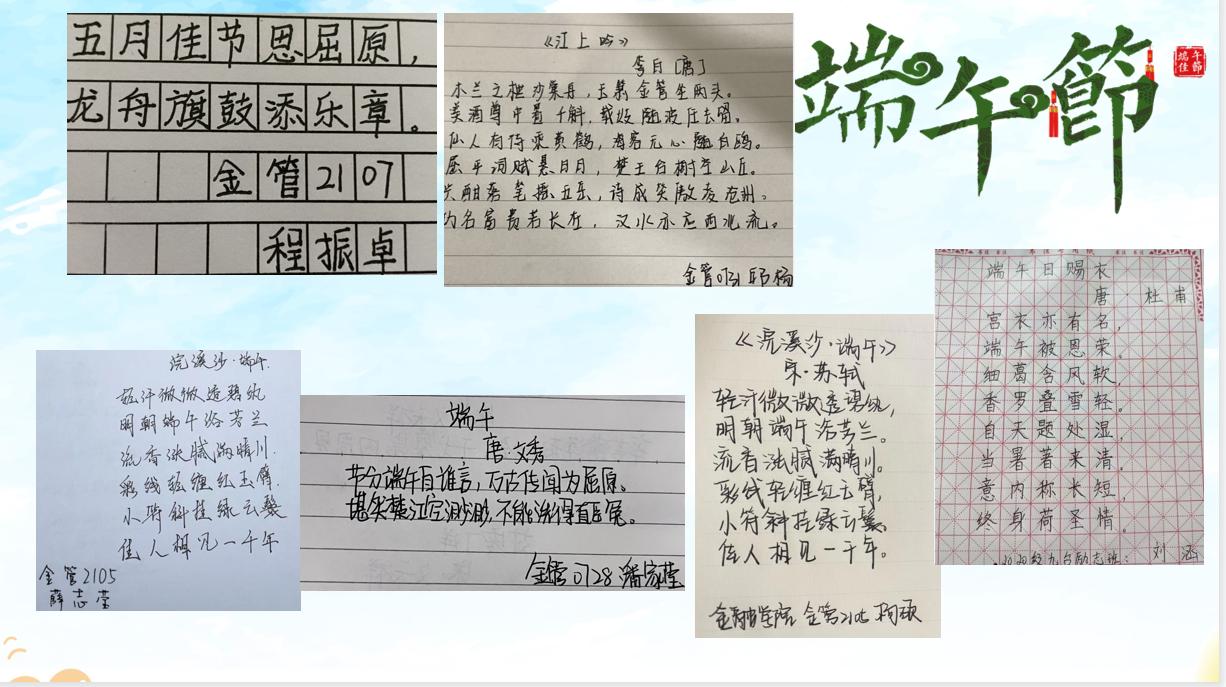 五月佳节思屈原，
龙舟旗鼓添乐章。
金管2107
程振卓
《江上吟》
李白［唐］
木兰之枻沙棠舟，玉箫金管坐两头。
美酒尊中置千斛，载妓随波任去留。
仙人有待乘黄鹤，海客无心随白鸥。
屈平词赋悬日月，楚王台榭空山丘。
兴酣落笔摇五岳，诗成笑傲凌沧洲。
功名富贵若长在，汉水亦应西北流。
金管0731 邱杨
端午節
端午佳節
端午日赐衣
唐·杜甫
宫衣亦有名，
端午被恩荣。
细葛含风软，
香罗叠雪轻。
自天题处湿，
当暑著来清。
意内称长短，
终身荷圣情。
2020级九台励志班：刘涵
浣溪沙·端午
轻汗微微透碧纨
明朝端午浴芳兰
流香涨腻满晴川.
彩线轻缠红玉臂.
小符斜挂绿云鬟
佳人相见一千年
金管2105
薛志莹
端午
唐·文秀
节分端午自谁言，万古传闻为屈原。
堪笑楚江空渺渺，不能洗得直臣冤。
金管0728 潘家莹
《浣溪沙·端午》
宋·苏轼
轻汗微微透碧纨，
明朝端午浴芳兰。
流香涨腻满晴川。
彩线轻缠红玉臂，
小符斜挂绿云鬟。
佳人相见一千年。
金融学院 金管2105 柯硕